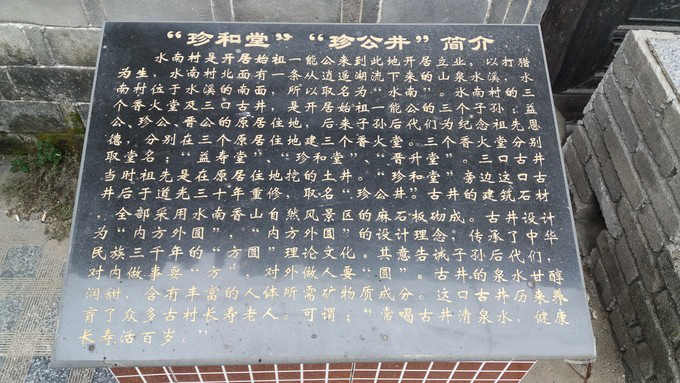 “珍和堂” “珍公井” 简介
水南村是开居始祖一能公来到此地开居立业，以打猎
为生，水南村北面有一条从逍遥湖流下来的山泉水溪，水
南村位于水溪的南面，所以取名为“水南”。水南村的三
个香火堂及三口古井，是开居始祖一能公的三个子孙：益
公、珍公、晋公的原居住地，后来子孙后代们为纪念祖先恩
德，分别在三个原居住地建三个香火堂。三个香火堂分别
取堂名：“益寿堂”、“珍和堂”、“晋升堂”。三口古井
当时祖先是在原居住地挖的土井。“珍和堂”旁边这口古
井后于道光三十年重修，取名“珍公井”。古井的建筑石材
，全部采用水南香山自然风景区的麻石板砌成。古井设计
为“内方外圆”，“内方外圆”的设计理念，传承了中华
民族三千年的“方圆”理论文化，其意告诫子孙后代们，
对内做事要“方”，对外做人要“圆”。古井的泉水甘醇
润甜，含有丰富的人体所需矿物质成分。这口古井历来养
育了众多古村长寿老人。可谓：“常喝古井清泉水，健康
长寿活百岁。”